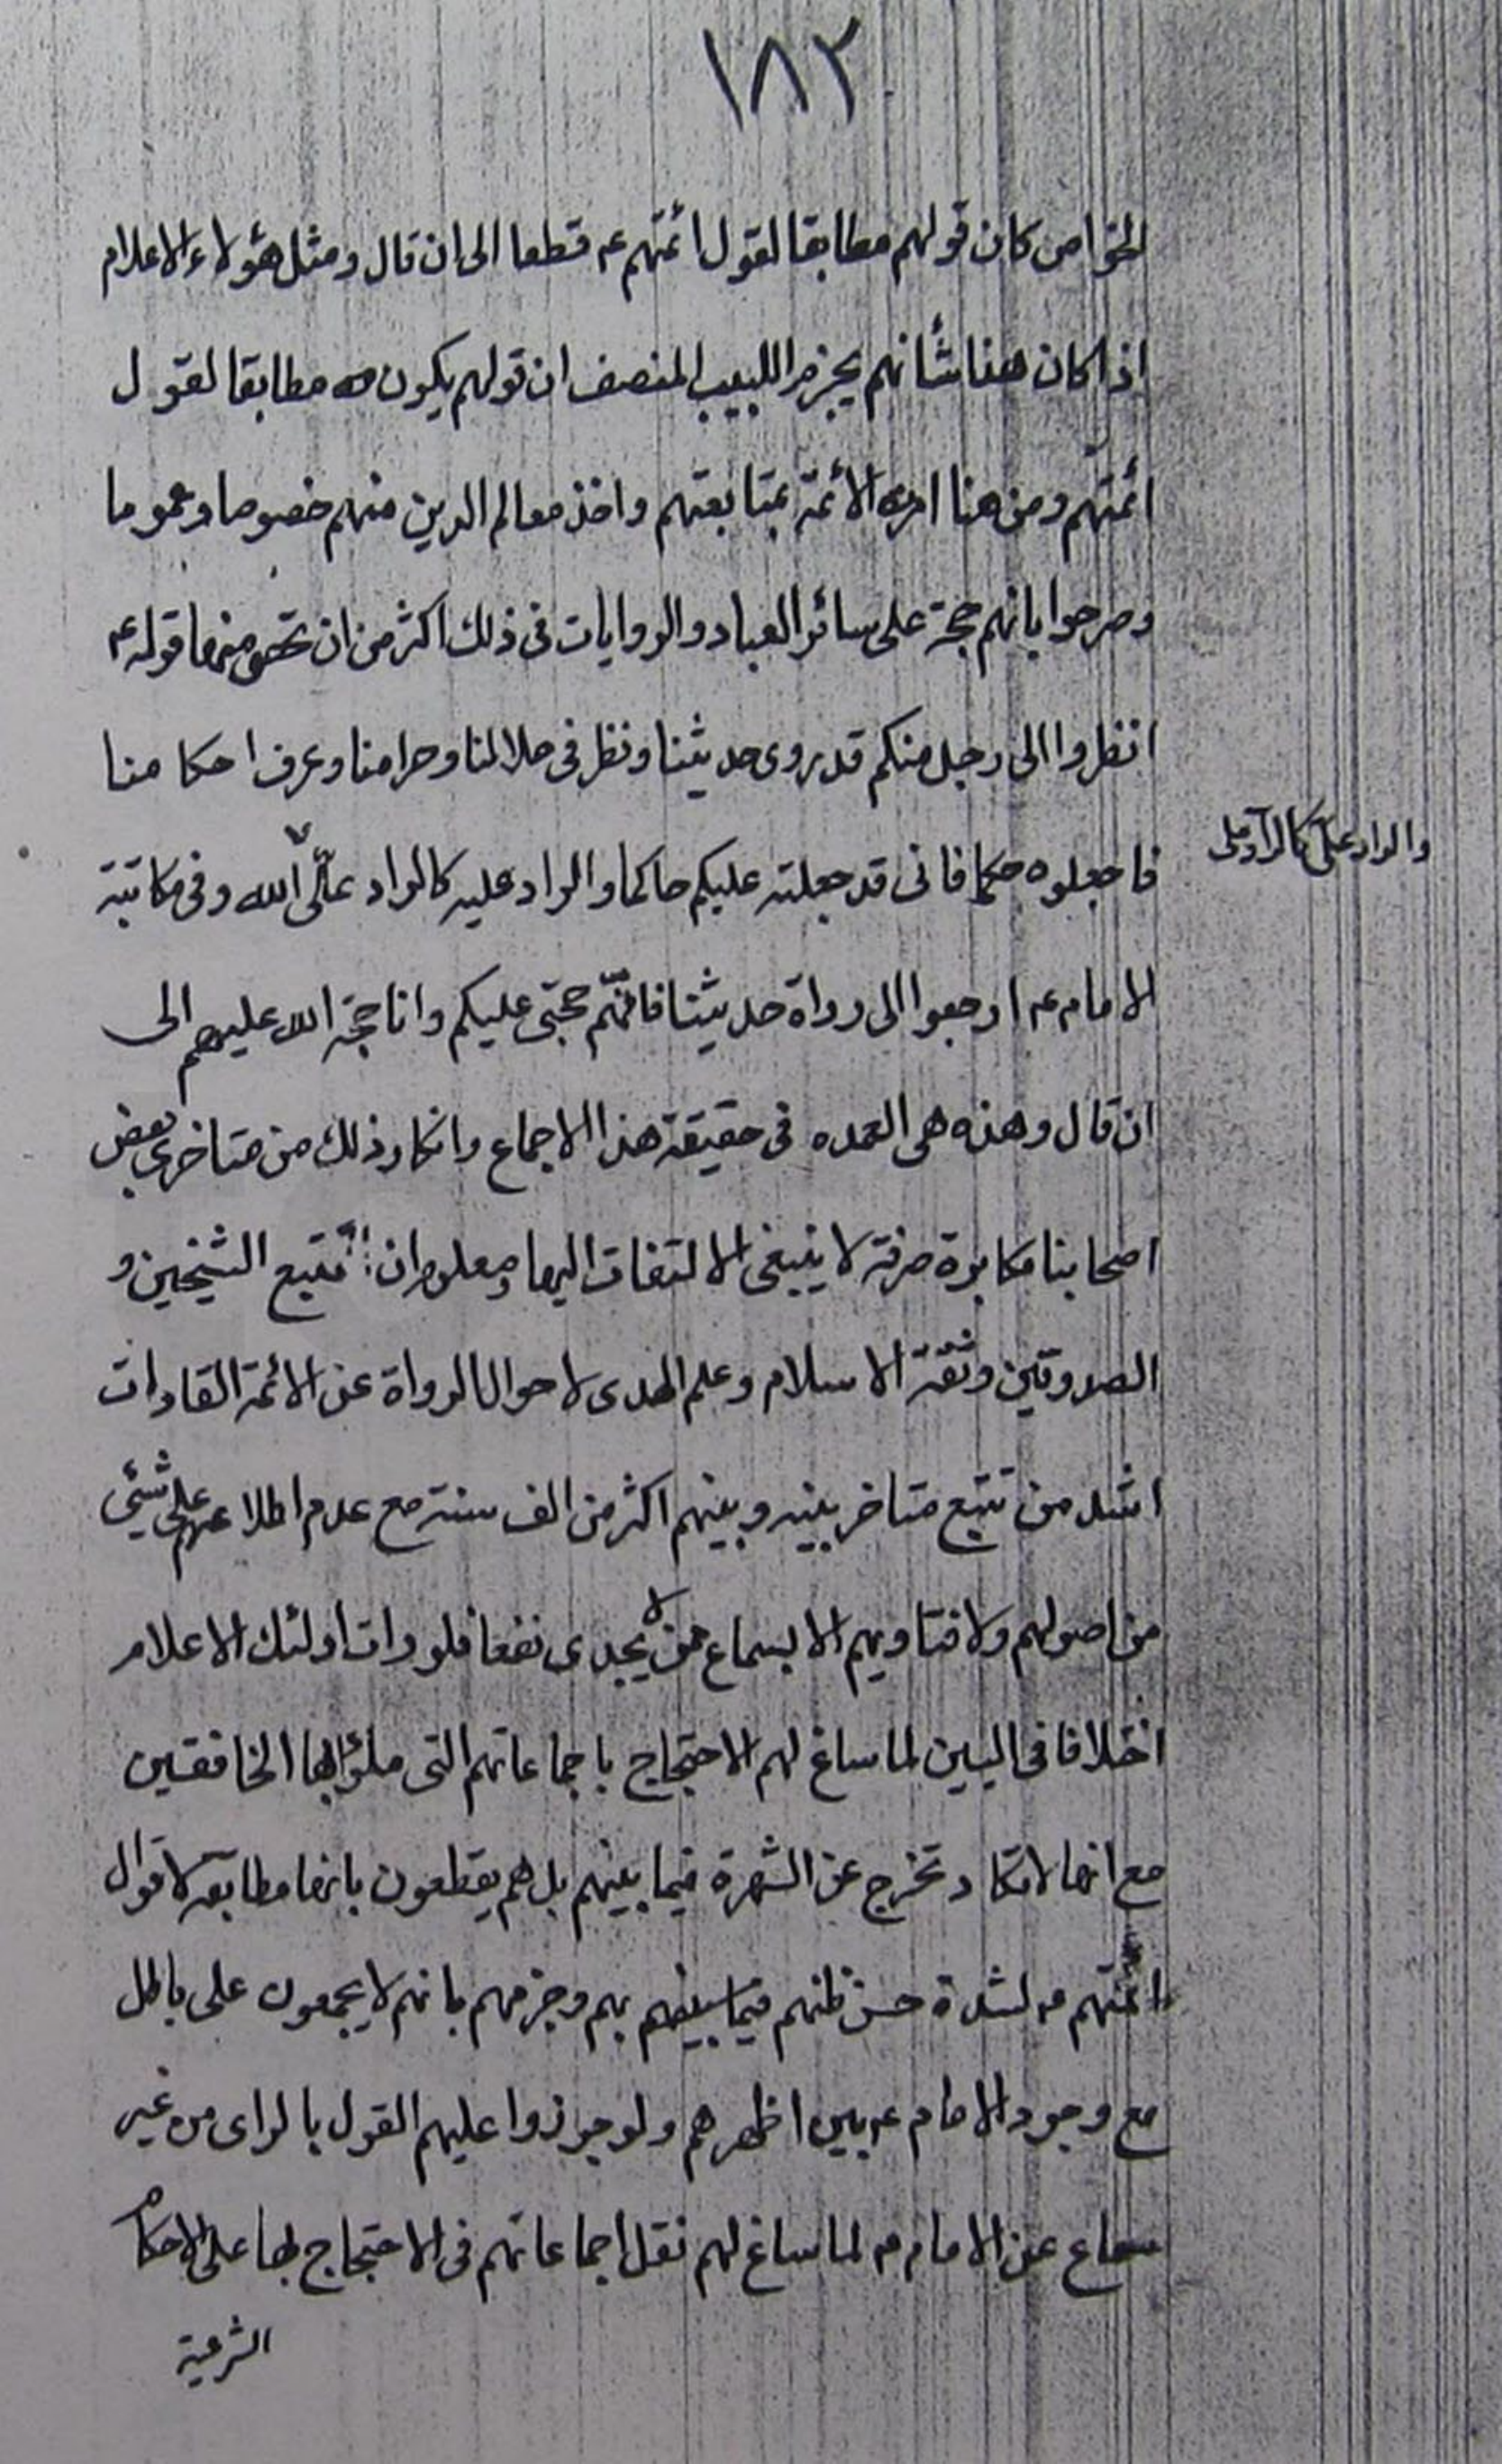 ١٨٢
الخواص كان قولهم مطابقا لقول ائمتهم ع قطعا الى ان قال ومثل هؤلاء الاعلام
اذا كان هذا شأنهم يجزم اللبيب المنصف ان قولهم يكون مطابقا لقول
ائمتهم ومن هنا امره الأئمة بمتابعتهم واخذ معالم الدين منهم خصوصا وعموما
وصرحوا بانهم حجة على سائر العباد والروايات فى ذلك اكثر من ان تحصى منها قوله ع
انظروا الى رجل منكم قد روى حديثنا ونظر فى حلالنا وحرامنا وعرف احكامنا
فاجعلوه حكما فانى قد جعلته عليكم حاكما والراد عليه كالراد على الله وفى مكاتبة
والراد علىّ كالرآد على
الامام ع ارجعوا الى رواة حديثنا فانّهم حجتى عليكم وانا حجة الله عليهم الى
ان قال وهذه هى العمده فى حقيقة هذا الاجماع وانكار ذلك من متاخرى بعض
اصحابنا مكابرة صرفة لا ينبغى الالتفات اليها ومعلوم ان تتبع الشيخين و
الصدوقين وثقة الاسلام وعلم الهدى لاحوال الرواة عن الائمة القادات
اشد من تتبع متاخر بينه وبينهم اكثر من الف سنة مع عدم اطلاعهم على شئى
من اصولهم ولا فتاويهم الا بسماع ممن لا يجدى نفعا فلو رات اولئك الاعلام
اختلافا فى البين لما ساغ لهم الاحتجاج باجماعاتهم التى ملؤا بها الخافقين
مع انها لا تكاد تخرج عن الشهرة فيما بينهم بل هم يقطعون بانها مطابقة لاقوال
ائمّتهم ع لشدة حسن ظنهم فيما بينهم بهم وجزمهم بانهم لا يجمعون على باطل
مع وجود الامام ع بين اظهرهم ولو جوزوا عليهم القول بالراى من غير
سماع عن الامام ع لما ساغ لهم نقل اجماعاتهم فى الاحتجاج بها على الاحكام
الشرعية